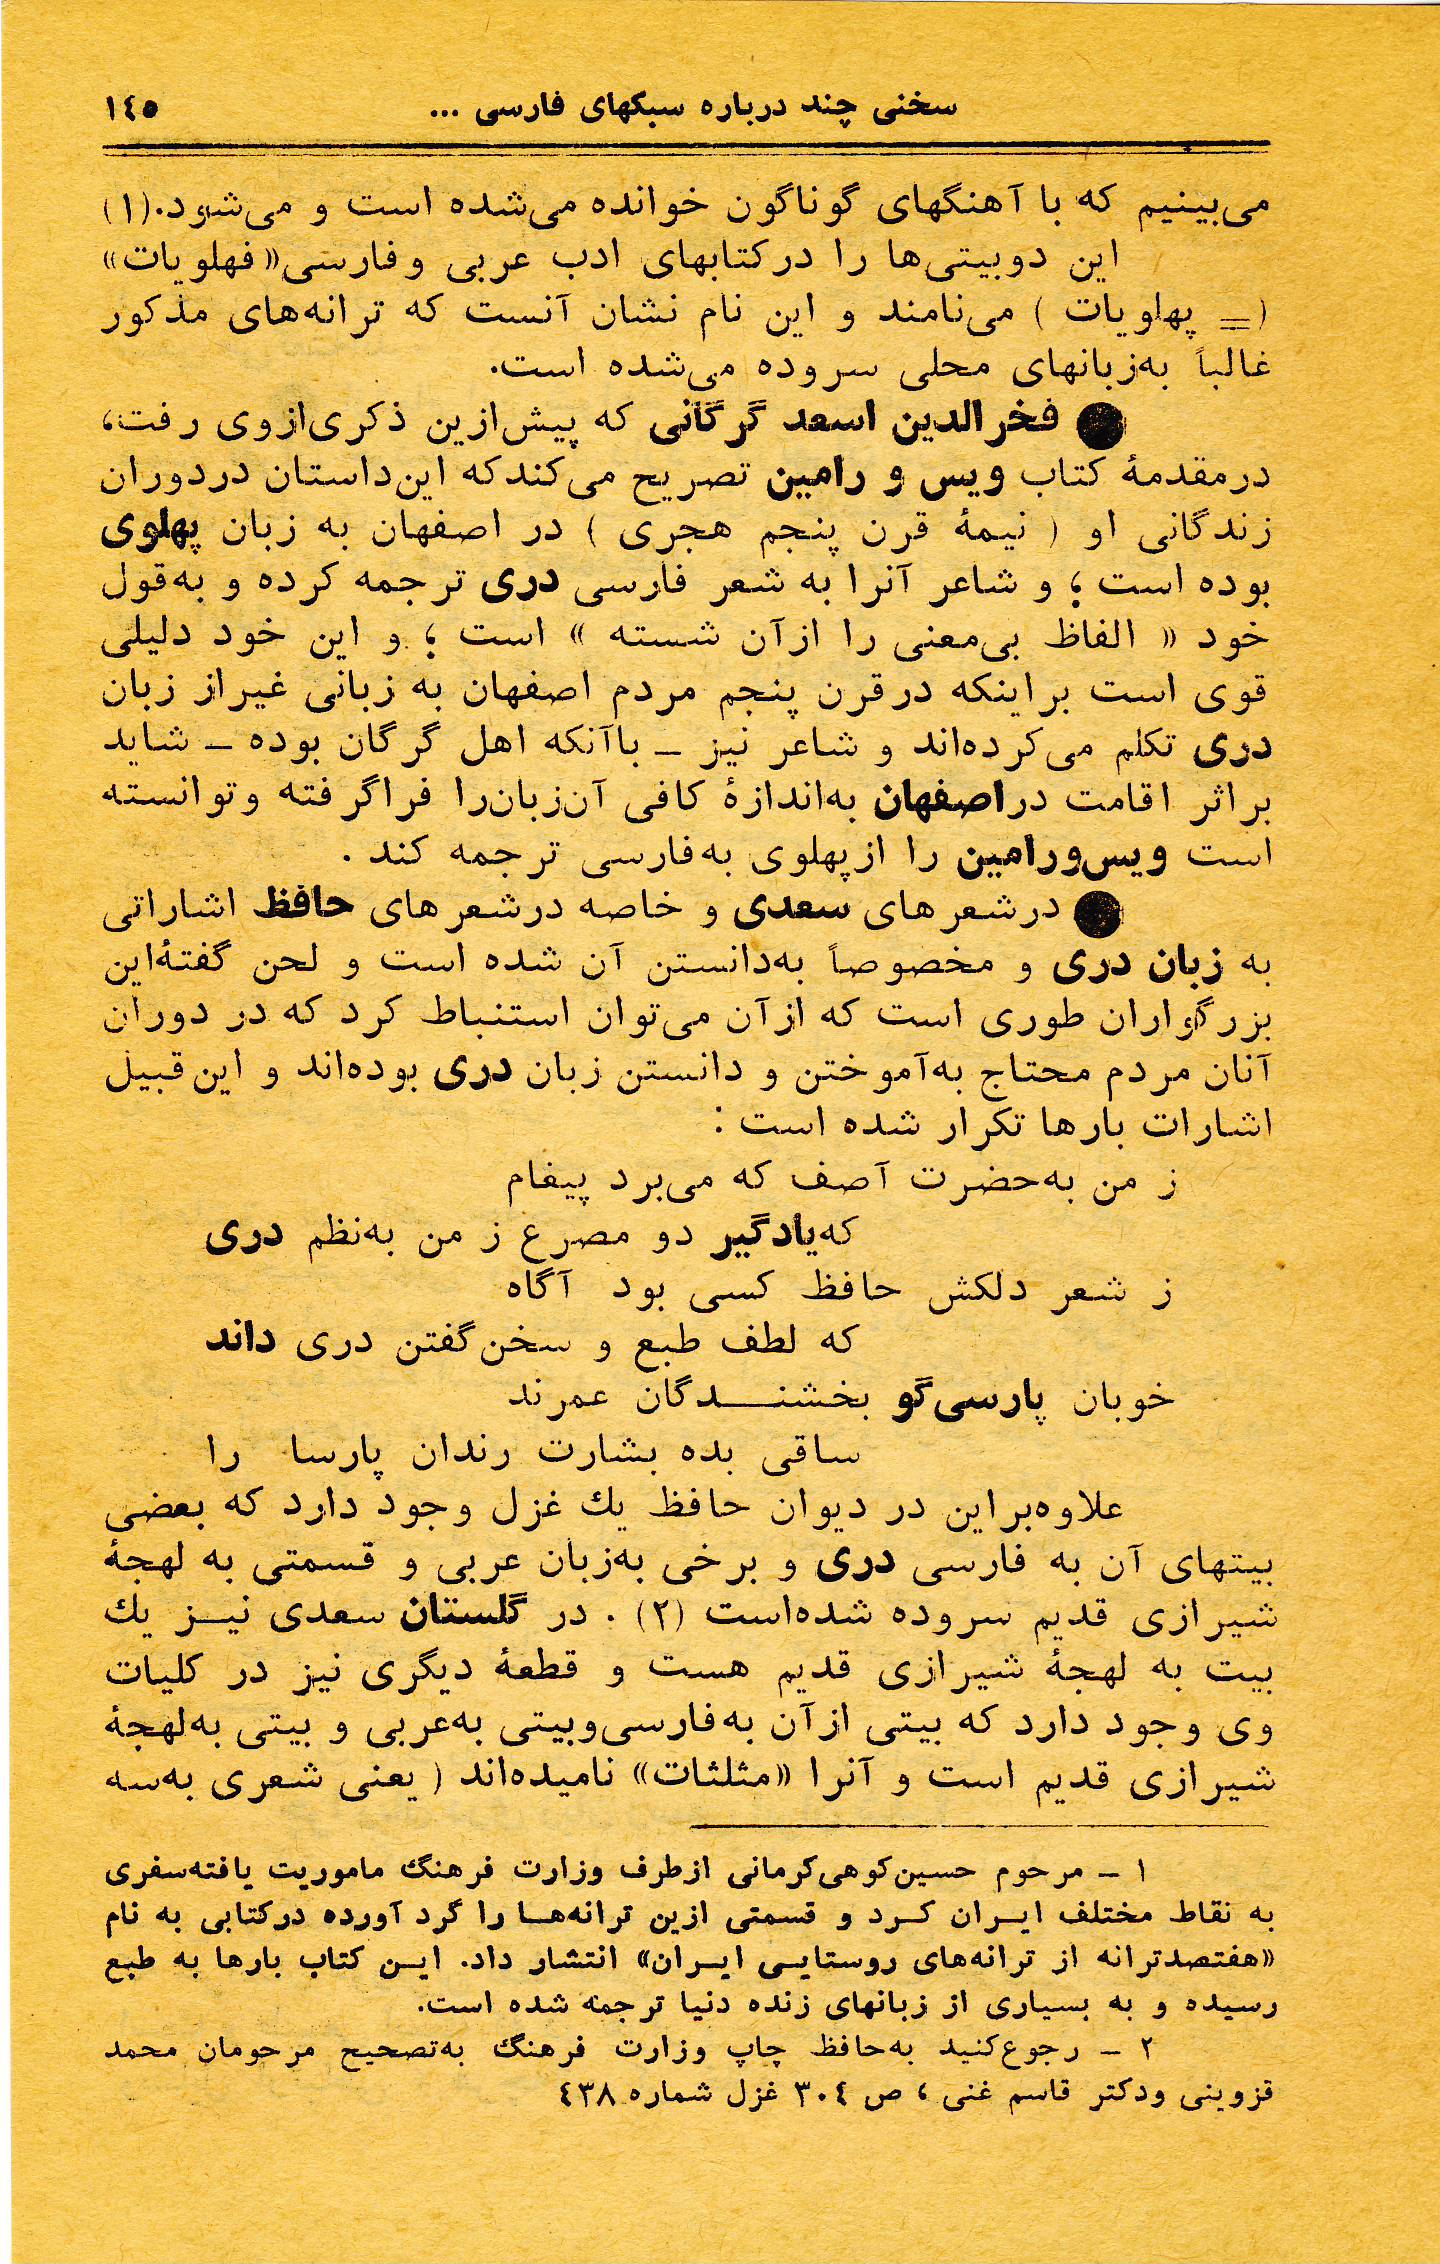 سخنی چند درباره سبکهای فارسی ...
١٤٥
می‌بینیم که با آهنگهای گوناگون خوانده می‌شده است و می‌شود.(١)
این دوبیتی‌ها را در کتابهای ادب عربی و فارسی «فهلویات»
(= پهلویات) می‌نامند و این نام نشان آنست که ترانه‌های مذکور
غالباً به‌زبانهای محلی سروده می‌شده است.
● فخرالدین اسعد گرگانی که پیش‌ازین ذکری‌ازوی رفت،
درمقدمهٔ کتاب ویس و رامین تصریح می‌کند که این‌داستان دردوران
زندگانی او ( نیمهٔ قرن پنجم هجری ) در اصفهان به زبان پهلوی
بوده است ؛ و شاعر آنرا به شعر فارسی دری ترجمه کرده و به‌قول
خود « الفاظ بی‌معنی را ازآن شسته » است ؛ و این خود دلیلی
قوی است براینکه درقرن پنجم مردم اصفهان به زبانی غیراز زبان
دری تکلم می‌کرده‌اند و شاعر نیز ـ باآنکه اهل گرگان بوده ـ شاید
براثر اقامت دراصفهان به‌اندازهٔ کافی آن‌زبان‌را فراگرفته وتوانسته
است ویس‌ورامین را ازپهلوی به‌فارسی ترجمه کند .
● درشعرهای سعدی و خاصه درشعرهای حافظ اشاراتی
به زبان دری و مخصوصاً به‌دانستن آن شده است و لحن گفتهٔ‌این
بزرگواران طوری است که ازآن می‌توان استنباط کرد که در دوران
آنان مردم محتاج به‌آموختن و دانستن زبان دری بوده‌اند و این‌قبیل
اشارات بارها تکرار شده است :
ز من به‌حضرت آصف که می‌برد پیغام
که‌یادگیر دو مصرع ز من به‌نظم دری
ز شعر دلکش حافظ کسی بود آگاه
که لطف طبع و سخن‌گفتن دری داند
خوبان پارسی‌گو بخشنــدگان عمرند
ساقی بده بشارت رندان پارسا را
علاوه‌براین در دیوان حافظ یك غزل وجود دارد که بعضی
بیتهای آن به فارسی دری و برخی به‌زبان عربی و قسمتی به لهجهٔ
شیرازی قدیم سروده شده‌است (٢) . در گلستان سعدی نیــز یك
بیت به لهجهٔ شیرازی قدیم هست و قطعهٔ دیگری نیز در کلیات
وی وجود دارد که بیتی ازآن به‌فارسی‌وبیتی به‌عربی و بیتی به‌لهجهٔ
شیرازی قدیم است و آنرا «مثلثات» نامیده‌اند ( یعنی شعری به‌سه
١ ـ مرحوم حسین‌کوهی‌کرمانی ازطرف وزارت فرهنگ ماموریت یافته‌سفری
به نقاط مختلف ایــران کــرد و قسمتی ازین ترانه‌هــا را گرد آورده درکتابی به نام
«هفتصدترانه از ترانه‌های روستایــی ایــران» انتشار داد. ایــن کتاب بارها به طبع
رسیده و به بسیاری از زبانهای زنده دنیا ترجمه شده است.
٢ ـ رجوع‌کنید به‌حافظ چاپ وزارت فرهنگ به‌تصحیح مرحومان محمد
قزوینی ودکتر قاسم غنی ، ص ٣٠٤ غزل شماره ٤٣٨